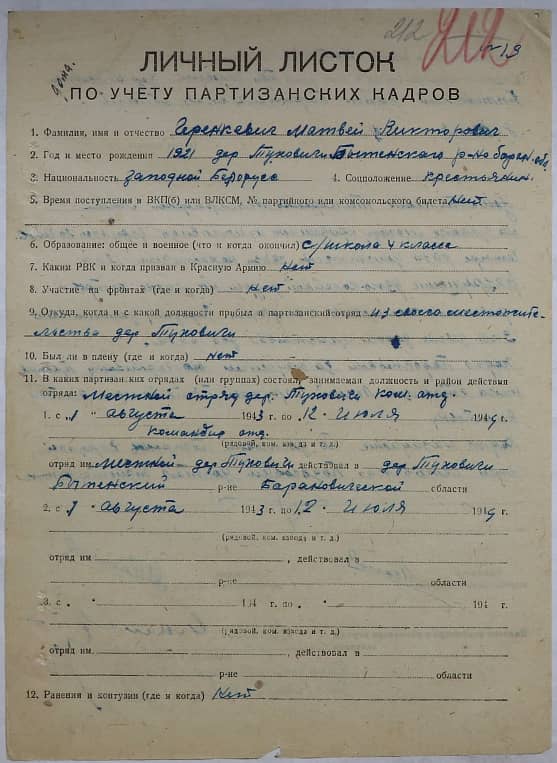 212 212 19
ЛИЧНЫЙ ЛИСТОК
ПО УЧЕТУ ПАРТИЗАНСКИХ КАДРОВ
1. Фамилия, имя и отчество Геренкевич Матвей Викторович
2. Год и место рождения 1921 дер Туховичи Бытенского р-но баран. обл
3. Национальность западной Белорусс 4. Соцположение крестьянин.
5. Время поступления в ВКП(б) или ВЛКСМ, № партийного или комсомольского билета нет
6. Образование: общее и военное (что и когда окончил) с/школа 4 класса
7. Каким РВК и когда призван в Красную Армию нет
8. Участие на фронтах (где и когда) нет
9. Откуда, когда и с какой должности прибыл в партизанский отряд из своего местожите-
льства дер Туховичи
10. Был ли в плену (где и когда) нет
11. В каких партизанских отрядах (или группах) состоял, занимаемая должность и район действия
отряда: Местный отряд дер. Туховичи ком. отд.
1. с „1 " августа 1943 г по 12 · Июля 1944 г.
командир отд.
(рядовой, ком. взвода и т. д.)
отряд им местной дер Туховичи действовал в дер Туховичи
Бытенский р-не Барановической области
2. с 1 · августа 1943 г. по 12 · Июля 1944 г.
(рядовой, ком. взвода и т. д.)
отряд им , действовал в
р-не области
3. с „ 194 г. по „ 194 г.
(рядовой, ком. взвода и т. д.)
отряд им , действовал в
р-не области
12. Ранения и контузии (где и когда) Нет